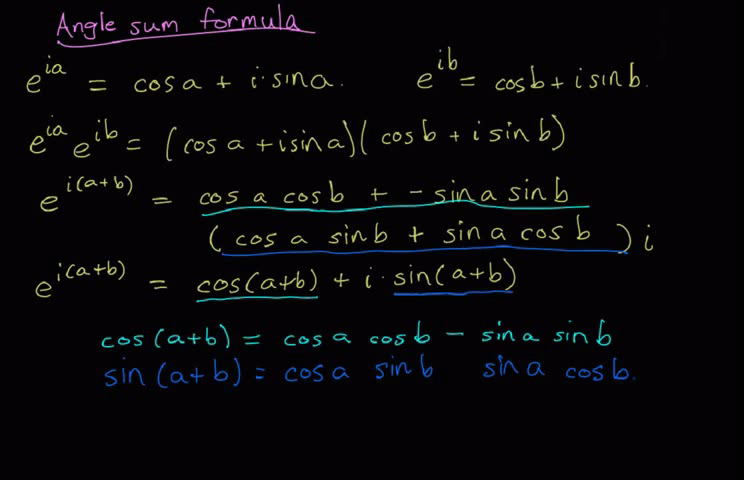 Angle sum formula
e^{ia} = cos a + i · sin a. e^{ib} = cos b + i sin b.
e^{ia} e^{ib} = (cos a + i sin a)(cos b + i sin b)
e^{i(a+b)} = cos a cos b + - sin a sin b
(cos a sin b + sin a cos b) i
e^{i(a+b)} = cos(a+b) + i · sin(a+b)
cos (a+b) = cos a cos b - sin a sin b
sin (a+b) = cos a sin b sin a cos b.